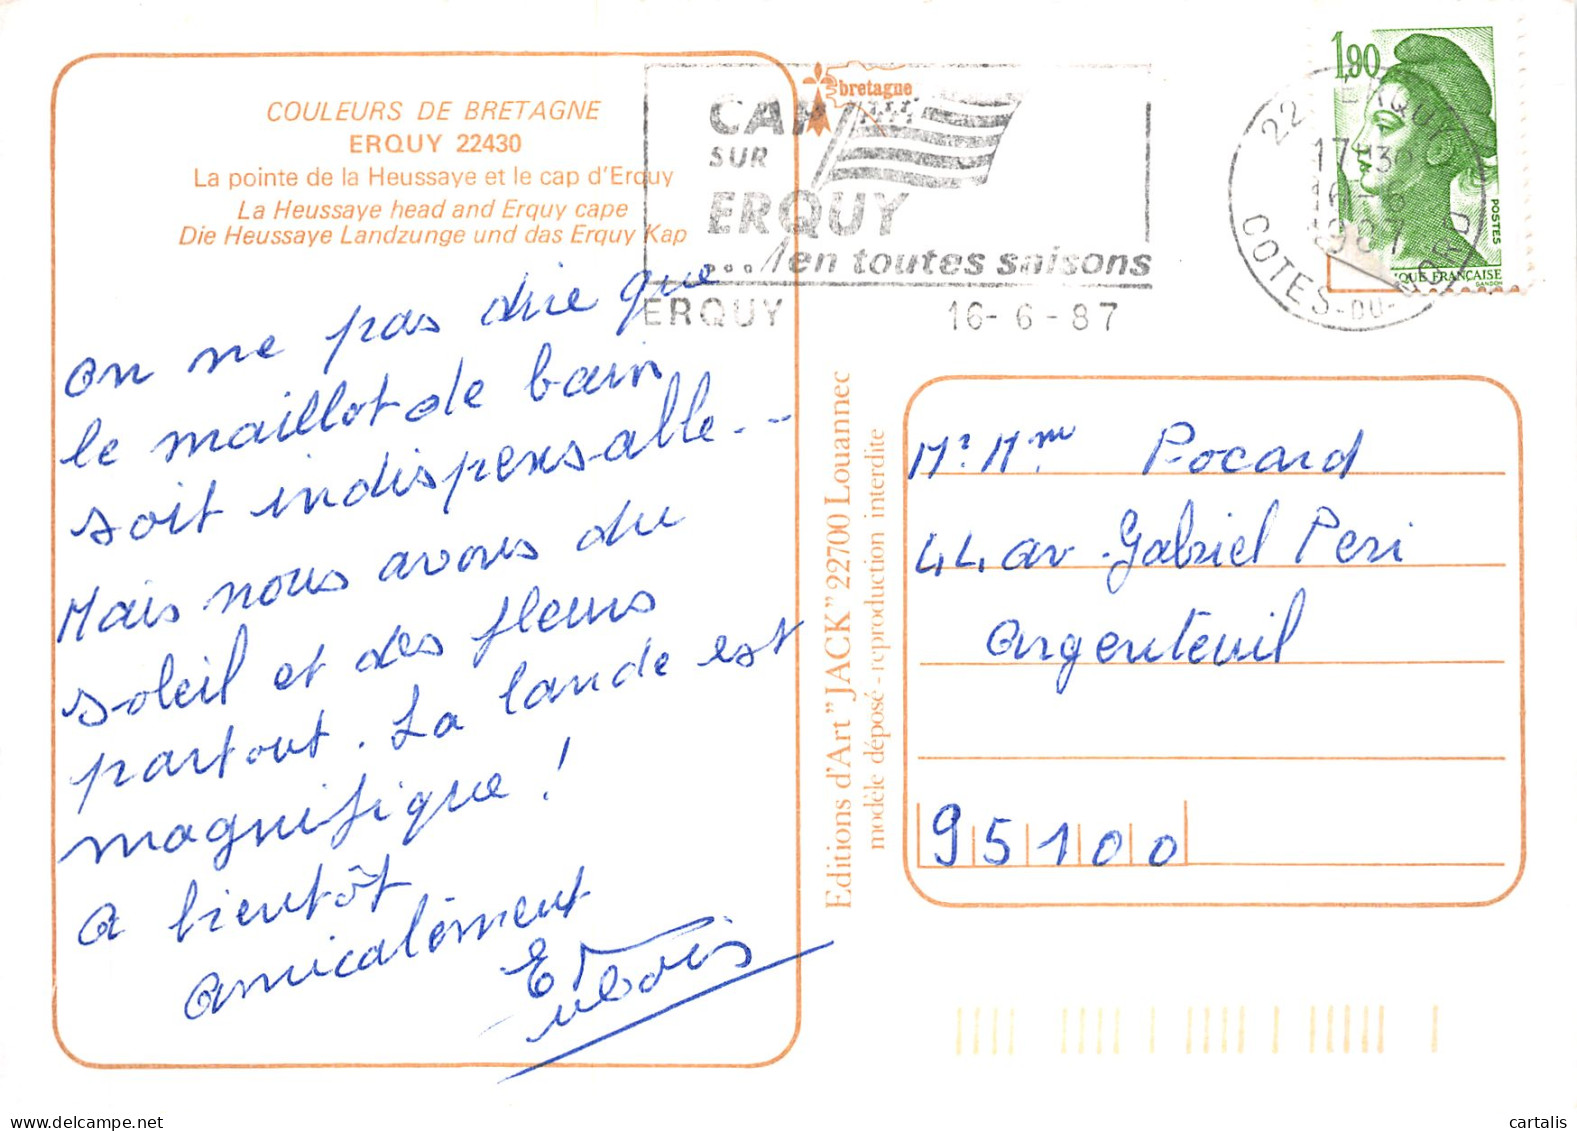 COULEURS DE BRETAGNE
ERQUY 22430
La pointe de la Heussaye et le cap d'Erquy
La Heussaye head and Erquy cape
Die Heussaye Landzunge und das Erquy Kap
on ne pas dire que
le maillot de bain
soit indispensable--
Mais nous avons du
soleil et des fleurs
partout. La lande est
magnifique !
a bientôt
amicalement
E Dubois
bretagne
CAP
SUR
ERQUY
...en toutes saisons
ERQUY 16-6-87
22 ERQUY
17-30
16-6
1987
COTES-DU-NORD
1,90
POSTES
QUE FRANCAISE
GANDON
Editions d'Art "JACK" 22700 Louannec
modèle déposé - reproduction interdite
Mr Mme Pocard
44 av. Gabriel Peri
Argenteuil
95100
cartalis